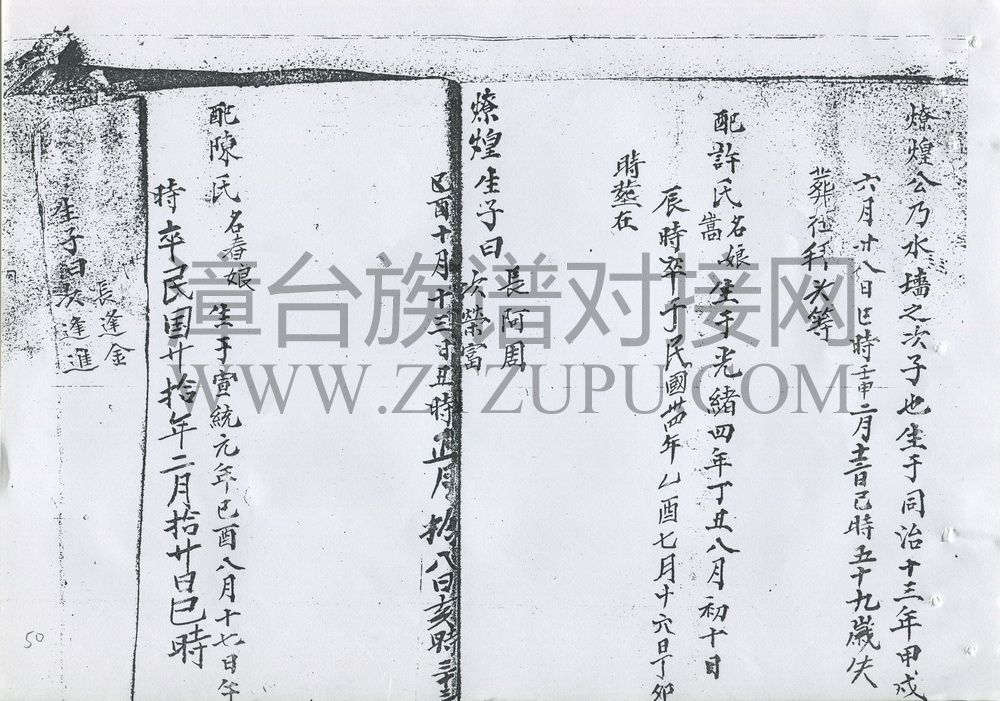 燎煌公乃水墙之次子也生于同治十三年甲戌
六月廿八日巳時壬申二月十二日巳時五十九歲失
葬在拜头等
配許氏名嵩娘生于光緒四年丁丑八月初十日
辰時卒于民國卅四年乙酉七月十六日丁卯
時塟在
燎煌生子曰長阿周
次榮富
己酉十月十三日丑時 正月初八日亥時
配陳氏名春娘生于宣統元年己酉八月十七日午
時卒民国廿拾年二月拾廿日巳時
生子曰長逢金
次逢進
50
章台族谱对接网
WWW.ZTZUPU.COM